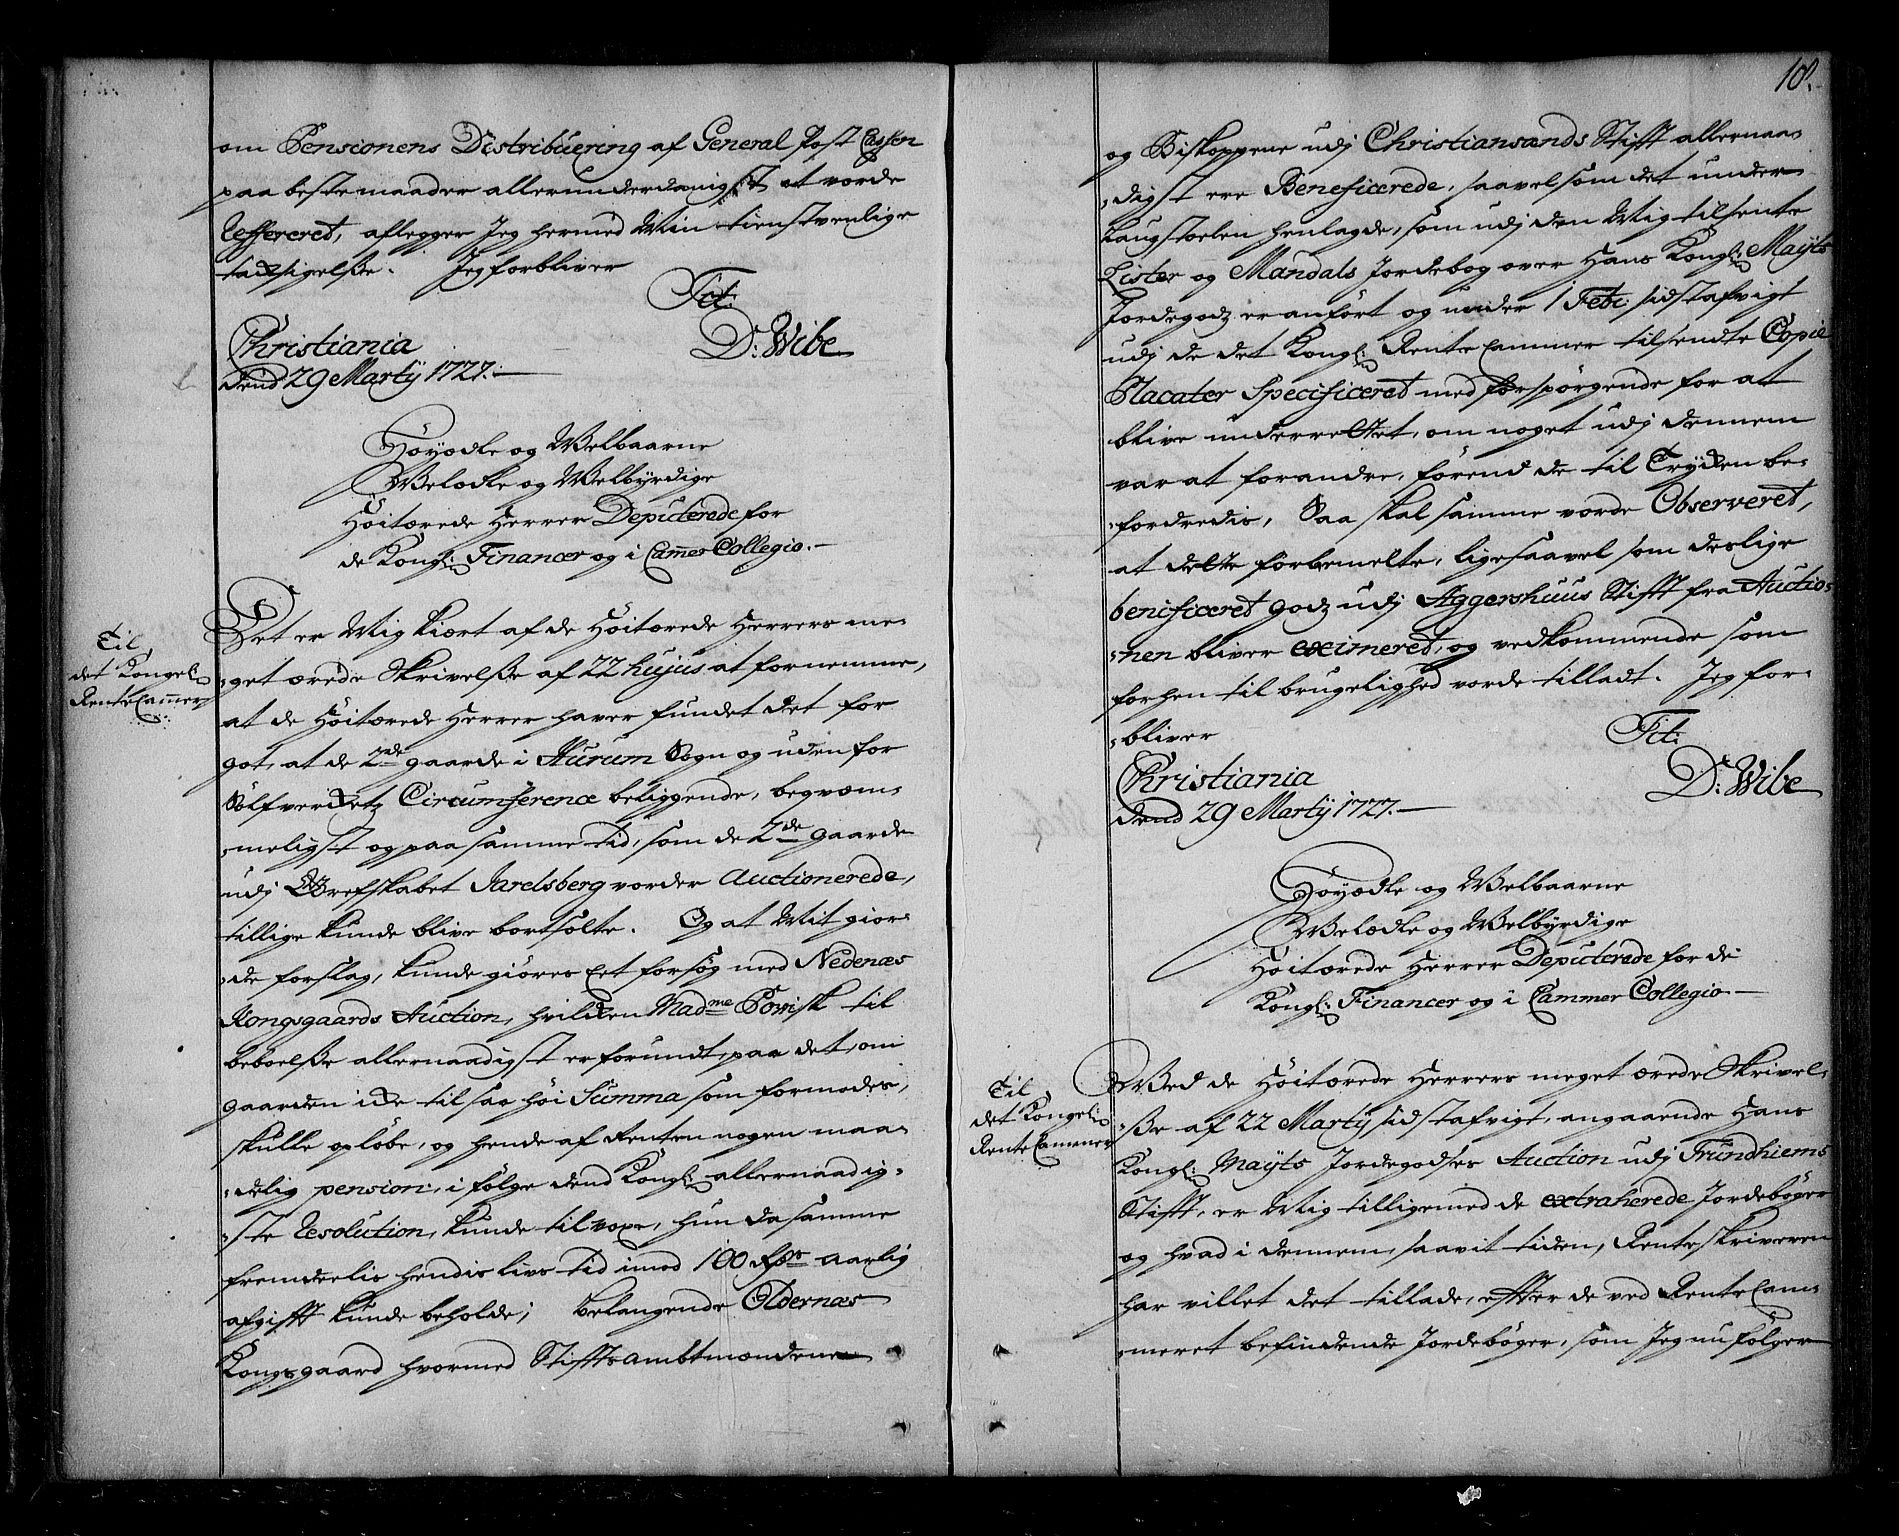 om Pensionens Distribuering af General Post Cassen
paa beste maader allerunderdanigst at vorde
Refereret, aflegger Jeg hermed Min tienstvenlige
tacksigelsse. Jeg forbliver
Tit:
Christiania
D: Wibe
dend 29 Martij 1727.
Höyædle og Welbaarne
Welædle og Welbyrdige
Höitærede Herrer Deputerede for
de Kongl: Financer og i Cammer Collegio.
Til
det Kongel:
Rente Cammer
Det er Mig kiært af de Höitærede Herrers me-
get ærede Skrivelsse af 22 hujus at fornemme,
at de Höitærede Herrer haver fundet det for
got, at de 2de gaarde i Aurum Sogn og uden for
Sölfverckets Circumference beliggende, beqvem-
meligst og paa samme tid, som de 2de gaarde
udj Grefskabet Jarelsberg vorder Auctionerede,
tillige kunde blive bortsolte. Og at Mit gior-
de forslag, kunde giöres Eet forsög med Nedenæs
Kongsgaards Auction, hvilcken Madme Powisk til
beboelsse allernaadigst er forundt, paa det, om
gaarden icke til saa höi Summa som formodes,
skulle opløbe, og hende af Renten nogen maa-
delig pension, i fölge dend Kongl: allernaadig-
ste Resolution, kunde tilvoxe, hun da samme
fremdeelis hendis livs tid imod 100 Rdr aarlig
afgifft kunde beholde; belangende Oldernæs
Kongsgaard hvormed Stifftsambtmændene
18.
og Biskoppene udj Christiansands Stifft allernaa-
digst ere Beneficerede, saavelsom det under
Laugstoelen henlagde, som udj den Mig tilsente
Lister og Mandals Jordebog over Hans Kongl: Mayts
Jordegodz er anfört og under 1 Febr: sidstafvigt
udj de det Kongl: Rente Cammer tilsendte Copie
Placater Specificeret med forspörgende for at
blive underrettet, om noget udj dennem
var at forandre, förend de til Trycken be-
fordredis, Saa skal samme vorde Observeret,
at dette forbemelte, ligesaavel som deslige
beneficeret godz udj Aggershuus Stifft fra Auctio-
nen bliver eximeret, og vedkommende som
forhen til brugelighed vorde tilladt. Jeg for-
bliver
Tit:
Christiania
D: Wibe
dend 29 Martij 1727.
Höyædle og Welbaarne
Welædle og Welbyrdige
Höitærede Herrer Deputerede for de
Kongl: Financer og i Cammer Collegio
Til
det Kongel:
Rente Cammer
Wed de Höitærede Herrers meget ærede Skrivel-
sse af 22 Martij sidstafvigt, angaaende Hans
Kongl: Mayts Jordegodses Auction udj Trundhiems
Stifft, er Mig tilligemed de extraherede Jordebøger
og hvad i dennem, saavit tiden, Renteskriveren
har villet det tillade, effter de ved RenteCam-
meret befindende Jordebøger, som Jeg nu fölger